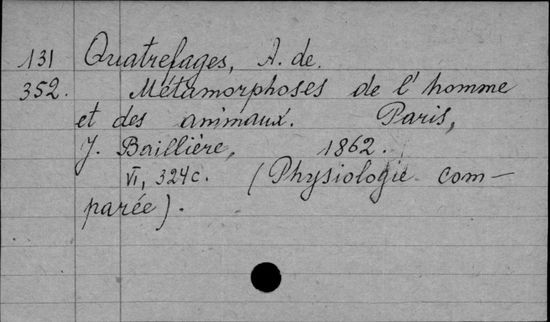 131 Quatrefages, A. de.
352. Métamorphoses de l'homme
et des animaux. Paris,
J. Baillière, 1862.
VI, 324c. (Physiologie com-
parée).